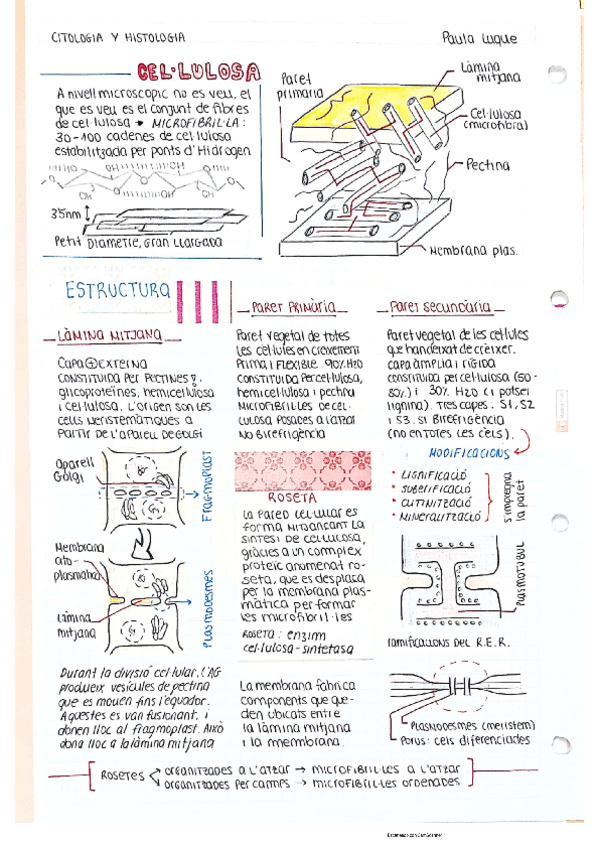 CITOLOGIA Y HISTOLOGIA
Paula Luque
CEL·LULOSA
A nivell microscopic no es veu, el
que es veu es el conjunt de fibres
de cel·lulosa → MICROFIBRIL·LA:
30-100 cadenes de cel·lulosa
estabilitzada per ponts d'Hidrogen
HO
OH
OH
OH
OH
3'5nm
Petit Diametre, Gran Llargada
Paret
primaria
Làmina
mitjana
Cel·lulosa
(microfibra)
Pectina
Membrana plas.
ESTRUCTURA
LÀMINA MITJANA
Capa ⊕ EXTERNA
CONSTITUIDA PER PECTINES
glicoproteïnes, hemicel·lulosa
i cel·lulosa. L'ORIGEN son les
cells MERISTEMÀTIQUES A
PARTIR DE L'APARELL DE GOLGI
Aparell
Golgi
FRAGMOPLAST
Membrana
cito-
plasmatica
Làmina
mitjana
PLASMODESMES
Durant la divisió cel·lular, l'AG
produeix vesicules de pectina
que es mouen fins l'equador.
Aquestes es van fusionant, i
donen lloc al fragmoplast. Això
dona lloc a la làmina mitjana
PARET PRIMÀRIA
Paret vegetal de totes
les cel·lules en creixement
Prima i FLEXIBLE. 90% H2O
CONSTITUIDA PER cel·lulosa,
hemicel·lulosa i pectina
MICROFIBRIL·LES DE CEL-
LULOSA POSADES A L'ATZAR
NO BIREFRIGÈNCIA
ROSETA
LA PARED CEL·LULAR ES
FORMA MITJANÇANT LA
SINTESI DE CEL·LULOSA,
gràcies a un complex
proteic anomenat ro-
seta, que es desplaça
per la membrana plas-
màtica per formar
les microfibril·les
ROSETA: enzim
cel·lulosa-sintetasa
La membrana fabrica
components que que-
den ubicats entre
la làmina mitjana
i la membrana.
PARET SECUNDÀRIA
Paret vegetal de les cel·lules
que han deixat de crèixer.
Capa àmplia i rígida
constituida per cel·lulosa (50-
80%) i 30% H2O (i potser
lignina). TRES CAPES: S1, S2
i S3. SI BIREFRIGÈNCIA
(no en totes les cèls).
MODIFICACIONS
• LIGNIFICACIÓ
• SUBERIFICACIÓ
• CUTINITZACIÓ
• MINERALITZACIÓ
s'impregna
la paret
PLASMOTUBUL
RAMIFICACIONS DEL R.E.R.
PLASMODESMES (meristem)
Porus: cels diferenciades
ROSETES
ORGANITZADES A L'ATZAR → MICROFIBRIL·LES A L'ATZAR
ORGANITZADES PER CAMPS → MICROFIBRIL·LES ORDENADES
Escaneado con CamScanner